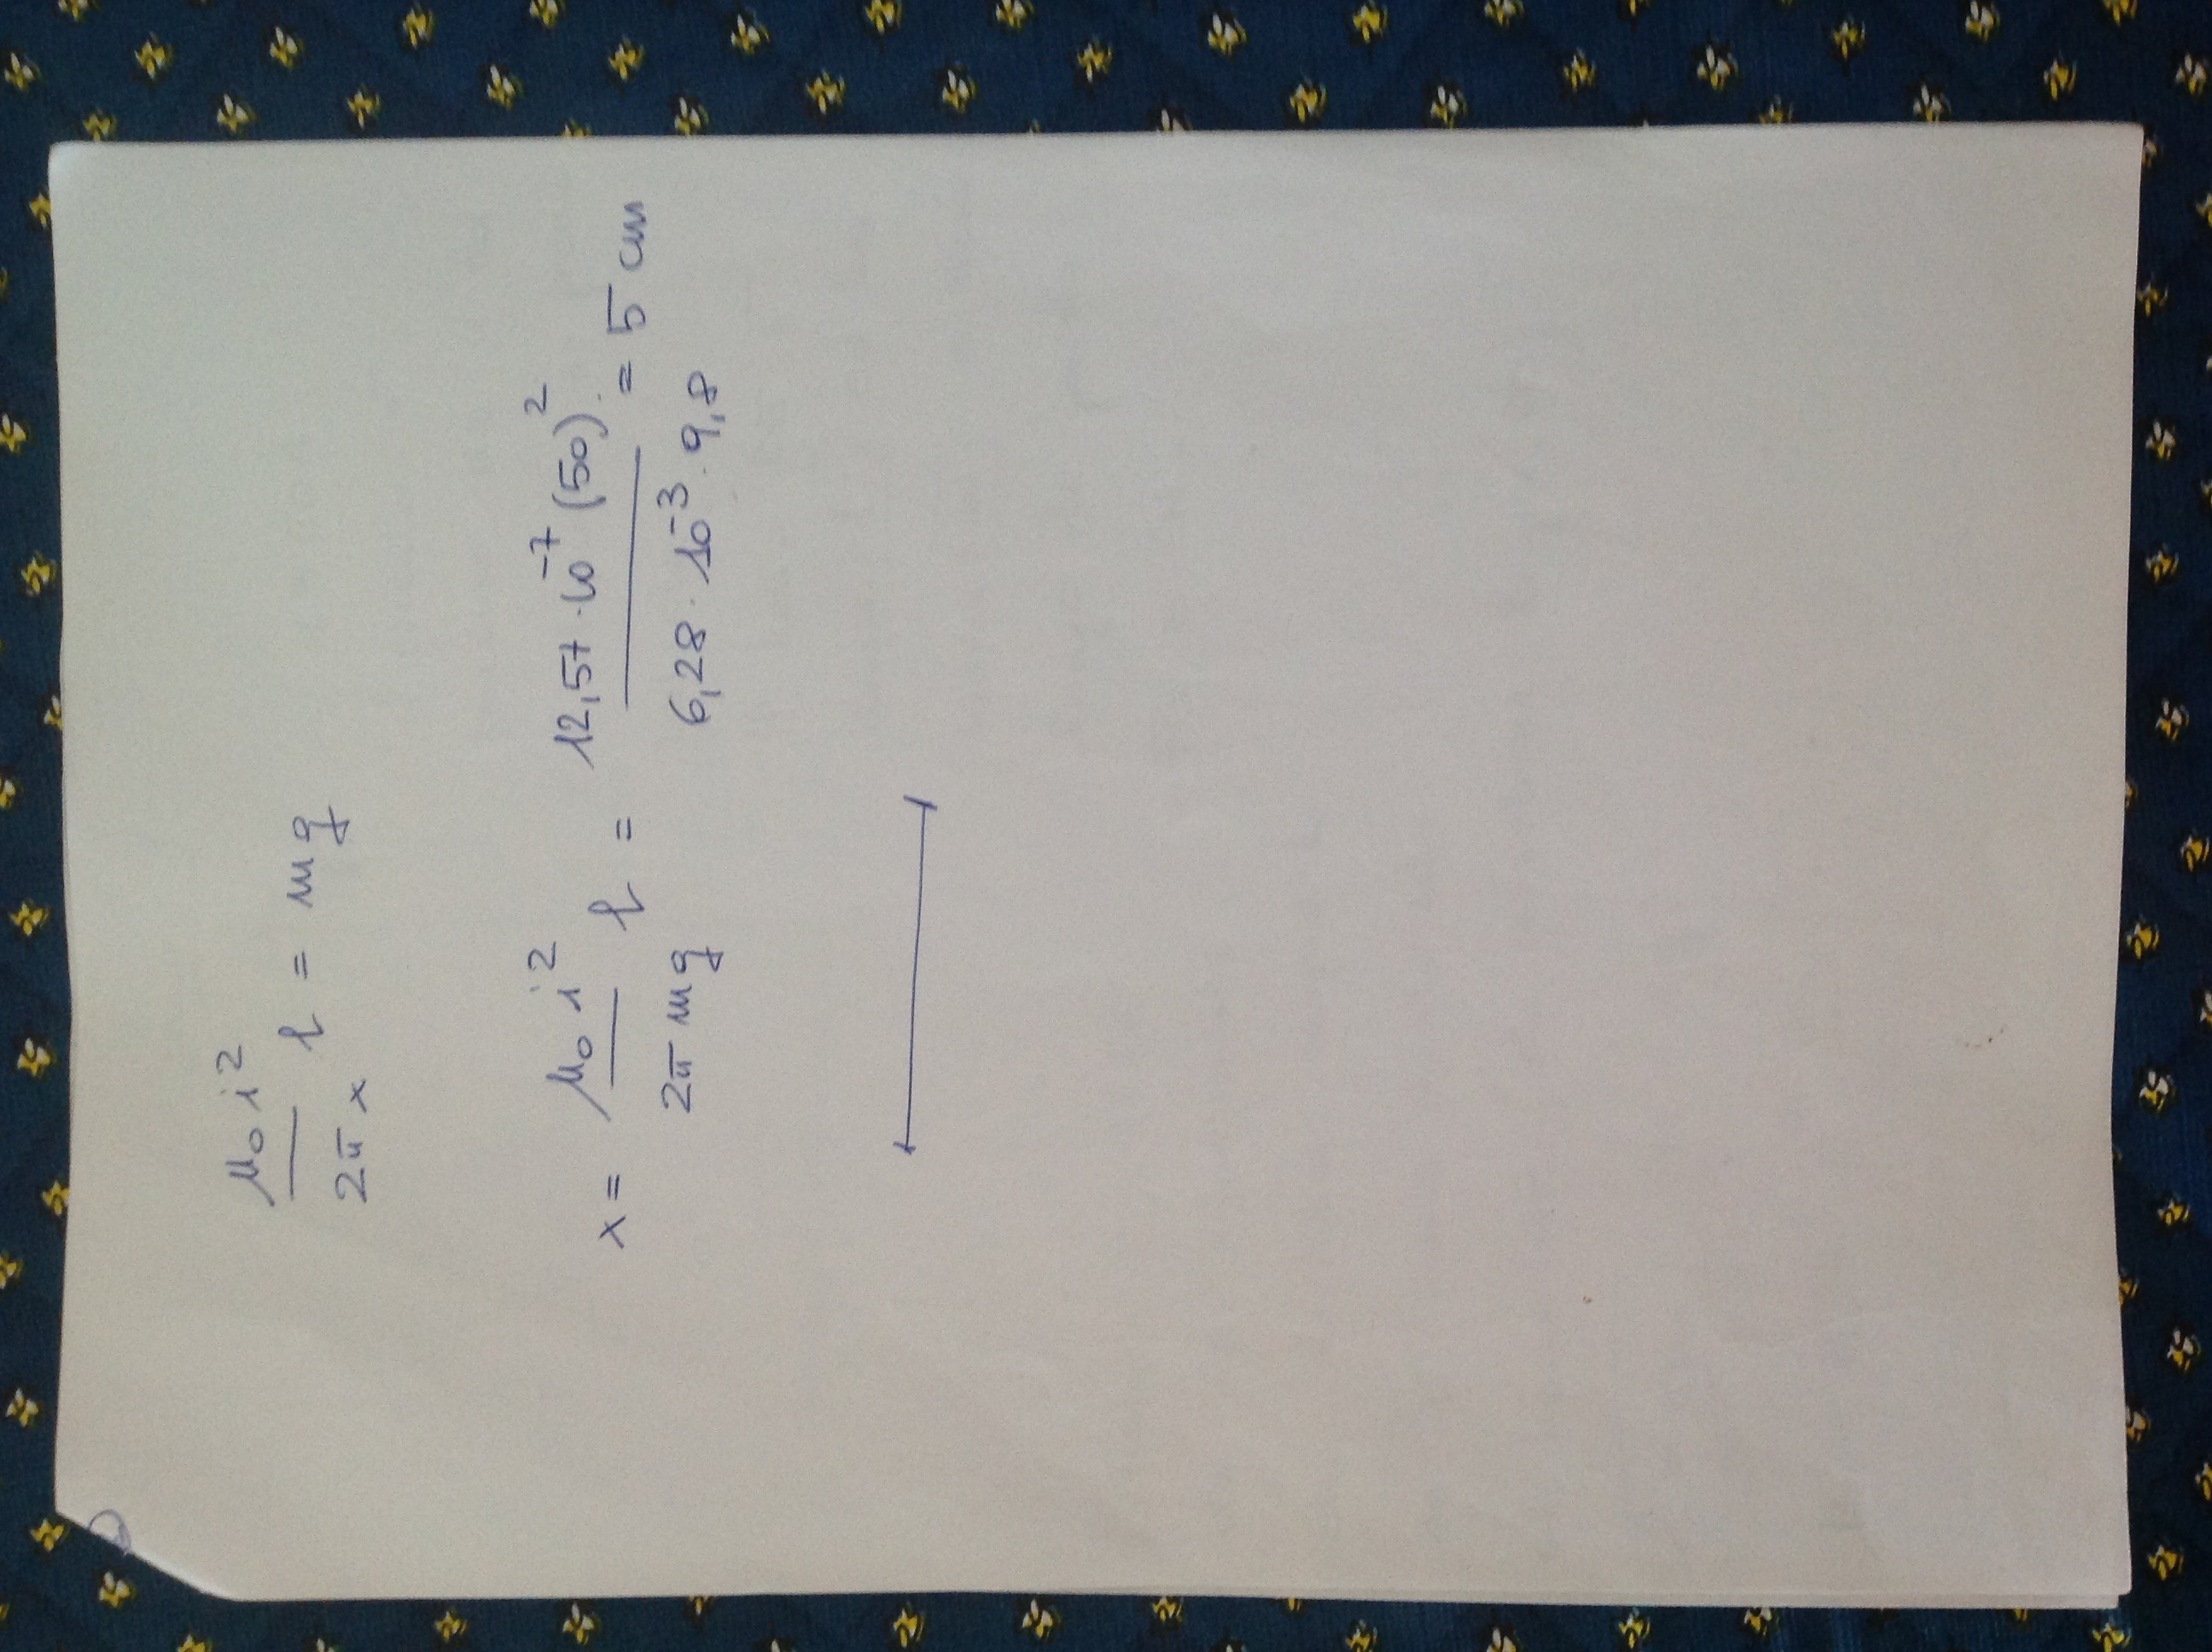 μ₀ i² / 2π x l = mg
x = μ₀ i² / 2π mg l = 12,57 · 10⁻⁷ (50)² / 6,28 · 10⁻³ · 9,8 = 5 cm